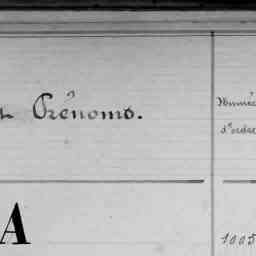 Prénoms.
Numéro
d'ordre
A
1005